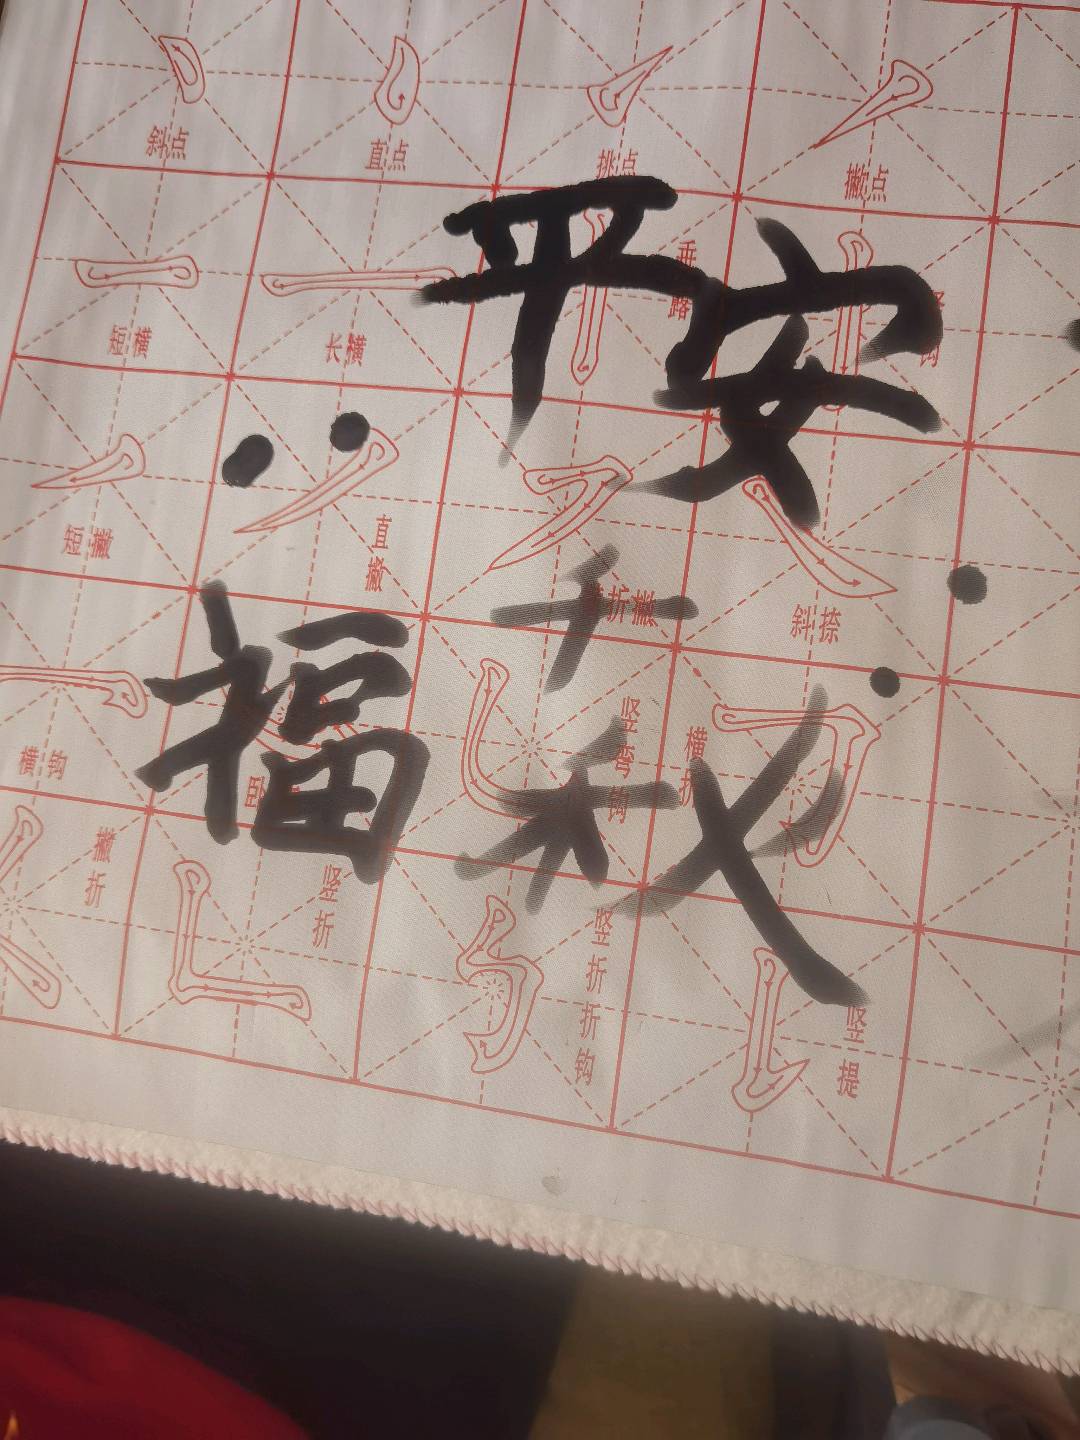 斜点 直点 挑点 撇点
平安
短横 长横 垂露
短撇 直撇 横折撇 斜捺
福
千
横钩 竖弯钩 横折
撇折 竖折 竖折折钩 竖提